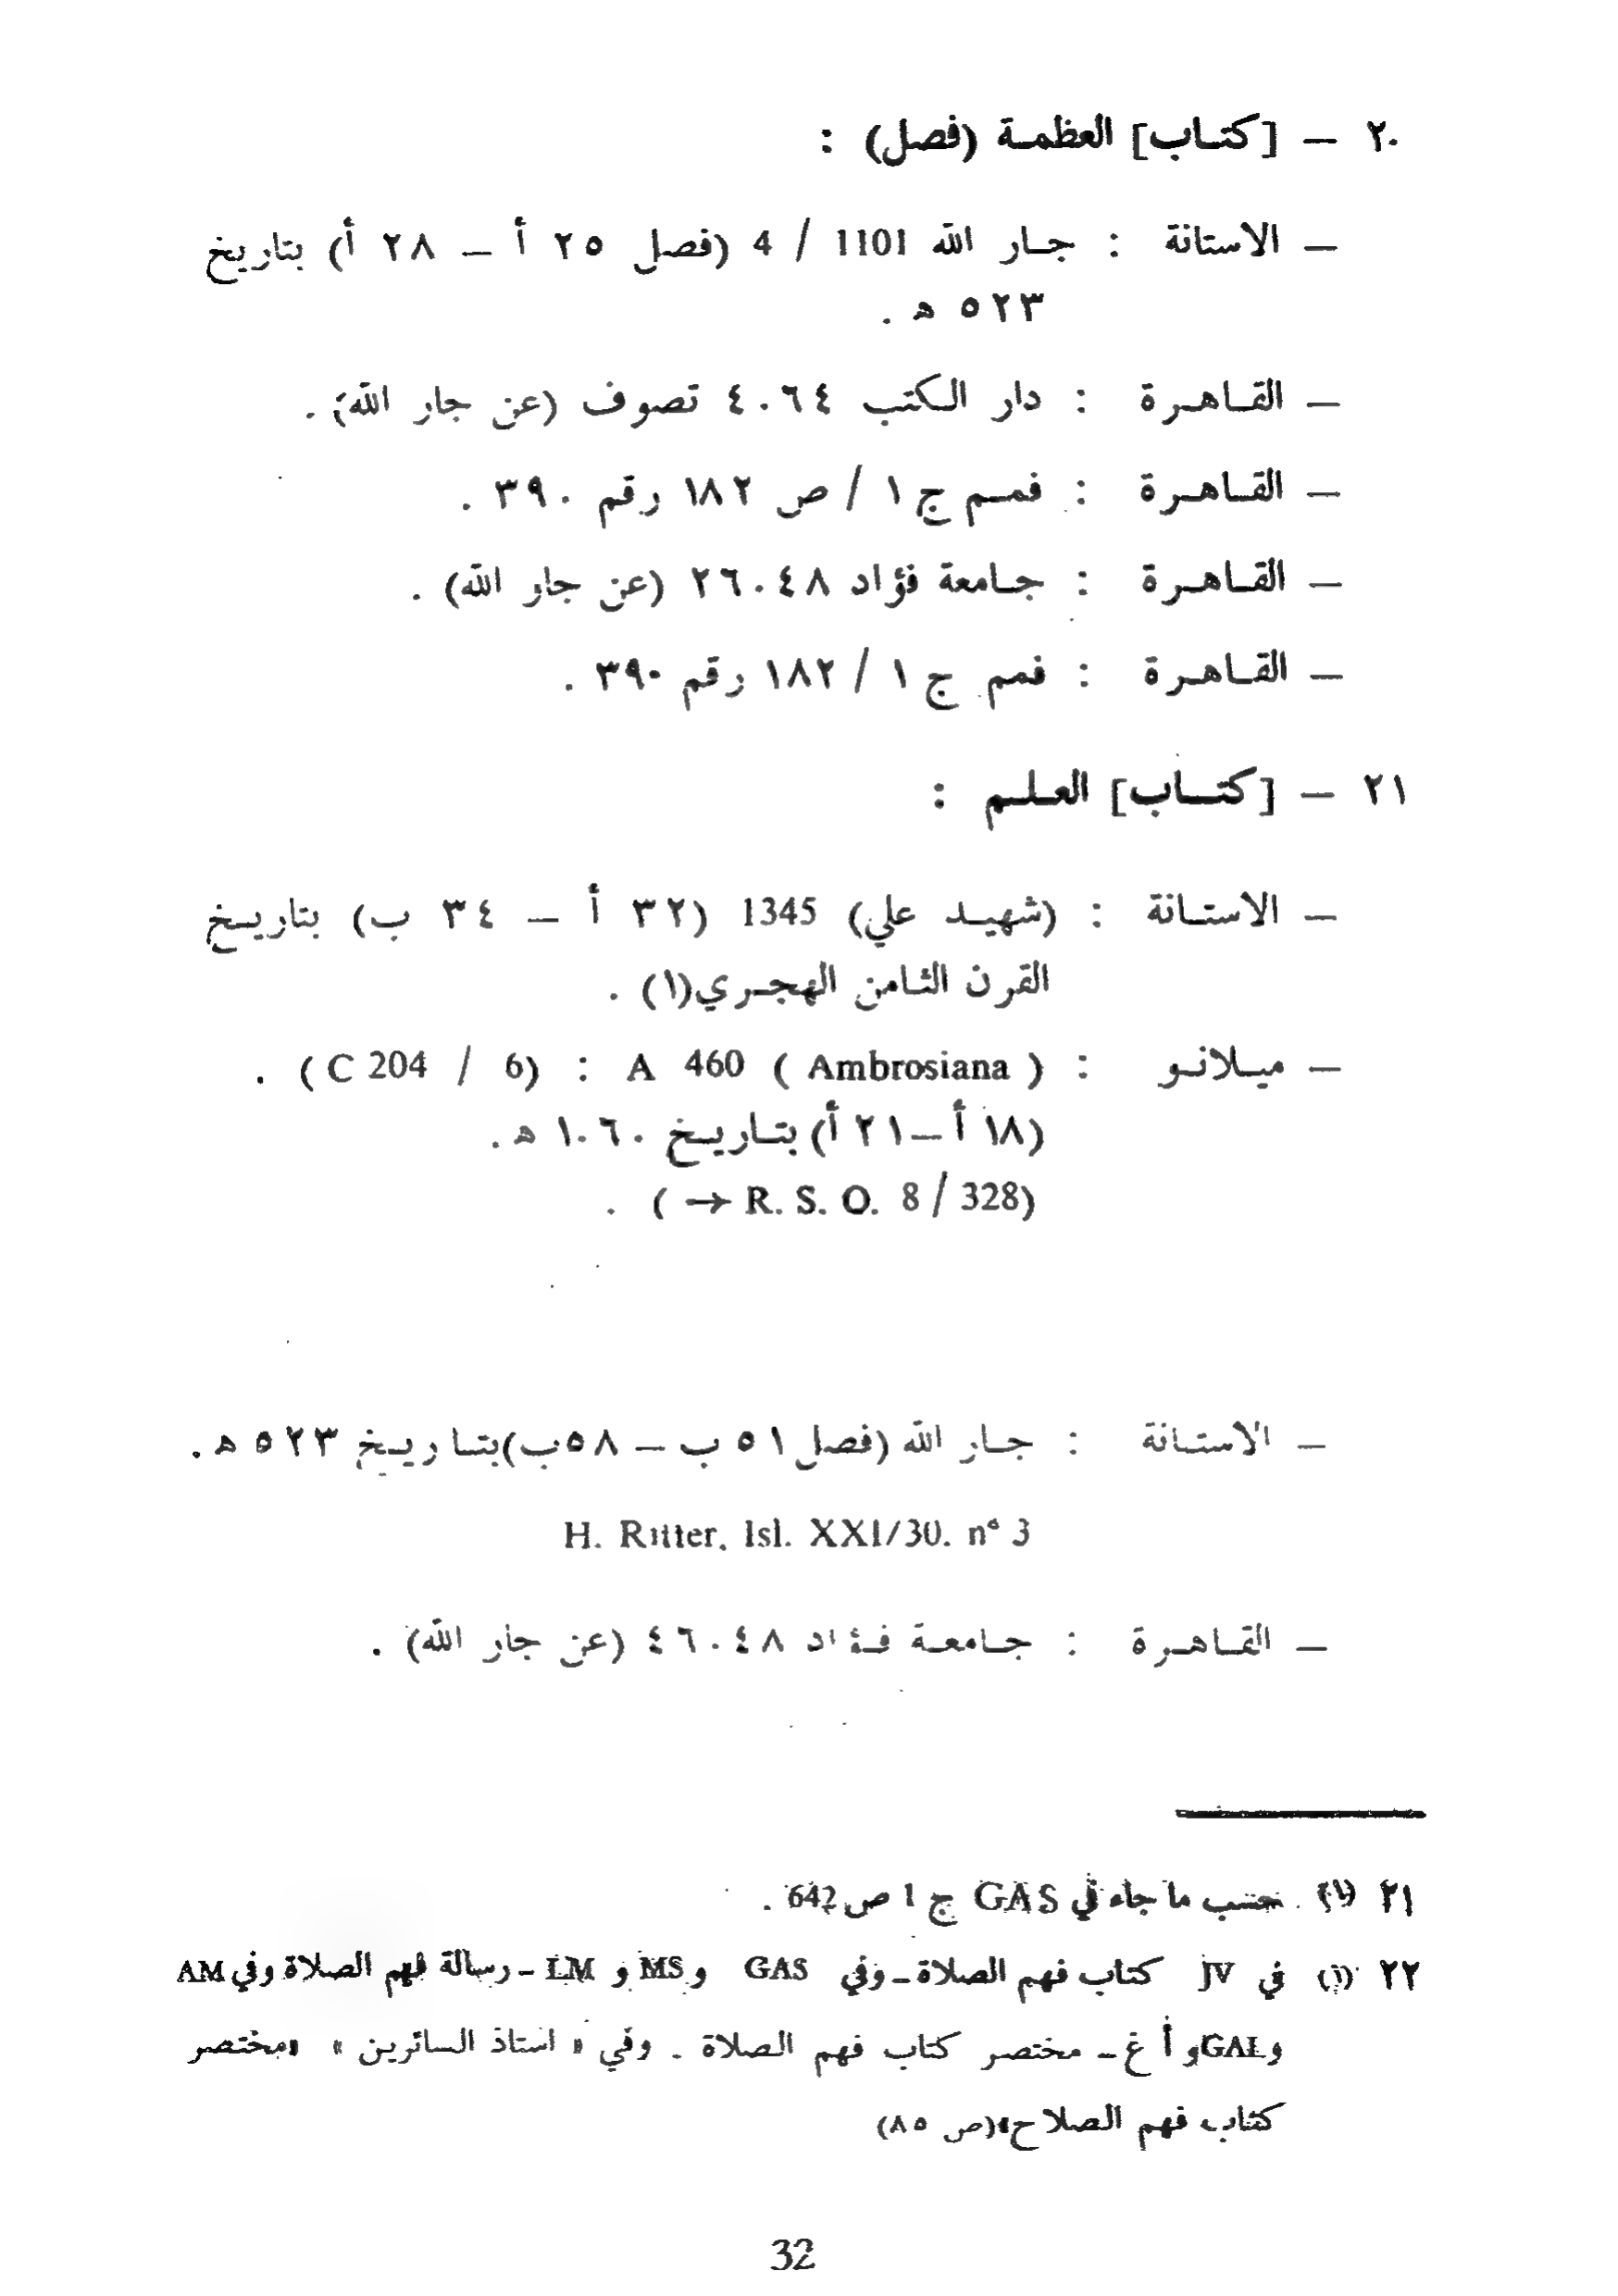 ٢٠ – [كتاب] العظمة (فصل) :
– الاستانة : جار الله 1101 / 4 (فصل ٢٥ أ – ٢٨ أ) بتاريخ
٥٢٣ ه .
– القاهرة : دار الكتب ٤٠٦٤ تصوف (عن جار الله) .
– القاهرة : فمم ج ١ / ص ١٨٢ رقم ٣٩٠ .
– القاهرة : جامعة فؤاد ٢٦٠٤٨ (عن جار الله) .
– القاهرة : فمم ج ١ / ١٨٢ رقم ٣٩٠ .
٢١ – [كتاب] العلم :
– الاستانة : (شهيد علي) 1345 (٣٢ أ – ٣٤ ب) بتاريخ
القرن الثامن الهجري(١) .
– ميلانو : ( Ambrosiana ) A 460 : (C 204 / 6 ) .
(١٨ أ – ٢١ أ) بتاريخ ١٠٦٠ ه .
( → R. S. O. 8 / 328) .
– الاستانة : جار الله (فصل ٥١ ب – ٥٨ ب) بتاريخ ٥٢٣ ه .
H. Ritter, Isl. XXI/30. n° 3
– القاهرة : جامعة فؤاد ٤٦٠٤٨ (عن جار الله) .
٢١ (١) حسب ما جاء في GAS ج 1 ص 642 .
٢٢ (١) في JV كتاب فهم الصلاة – وفي GAS و MS و LM – رسالة فهم الصلاة وفي AM
وGAL و أ غ – مختصر كتاب فهم الصلاة . وفي « استاذ السائرين » «مختصر
كتاب فهم الصلاح»(ص ٨٥)
32